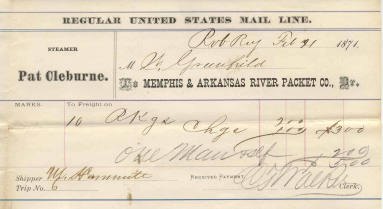 REGULAR UNITED STATES MAIL LINE.
STEAMER
Pat Cleburne.
Rob Roy Feb 21 1871.
M Greenfield
To MEMPHIS & ARKANSAS RIVER PACKET CO., Dr.
MARKS. To Freight on
10 Pkgs Chgs 200
100 $300
200
$5.00
Shipper
Trip No. 6
RECEIVED PAYMENT,
Clerk.